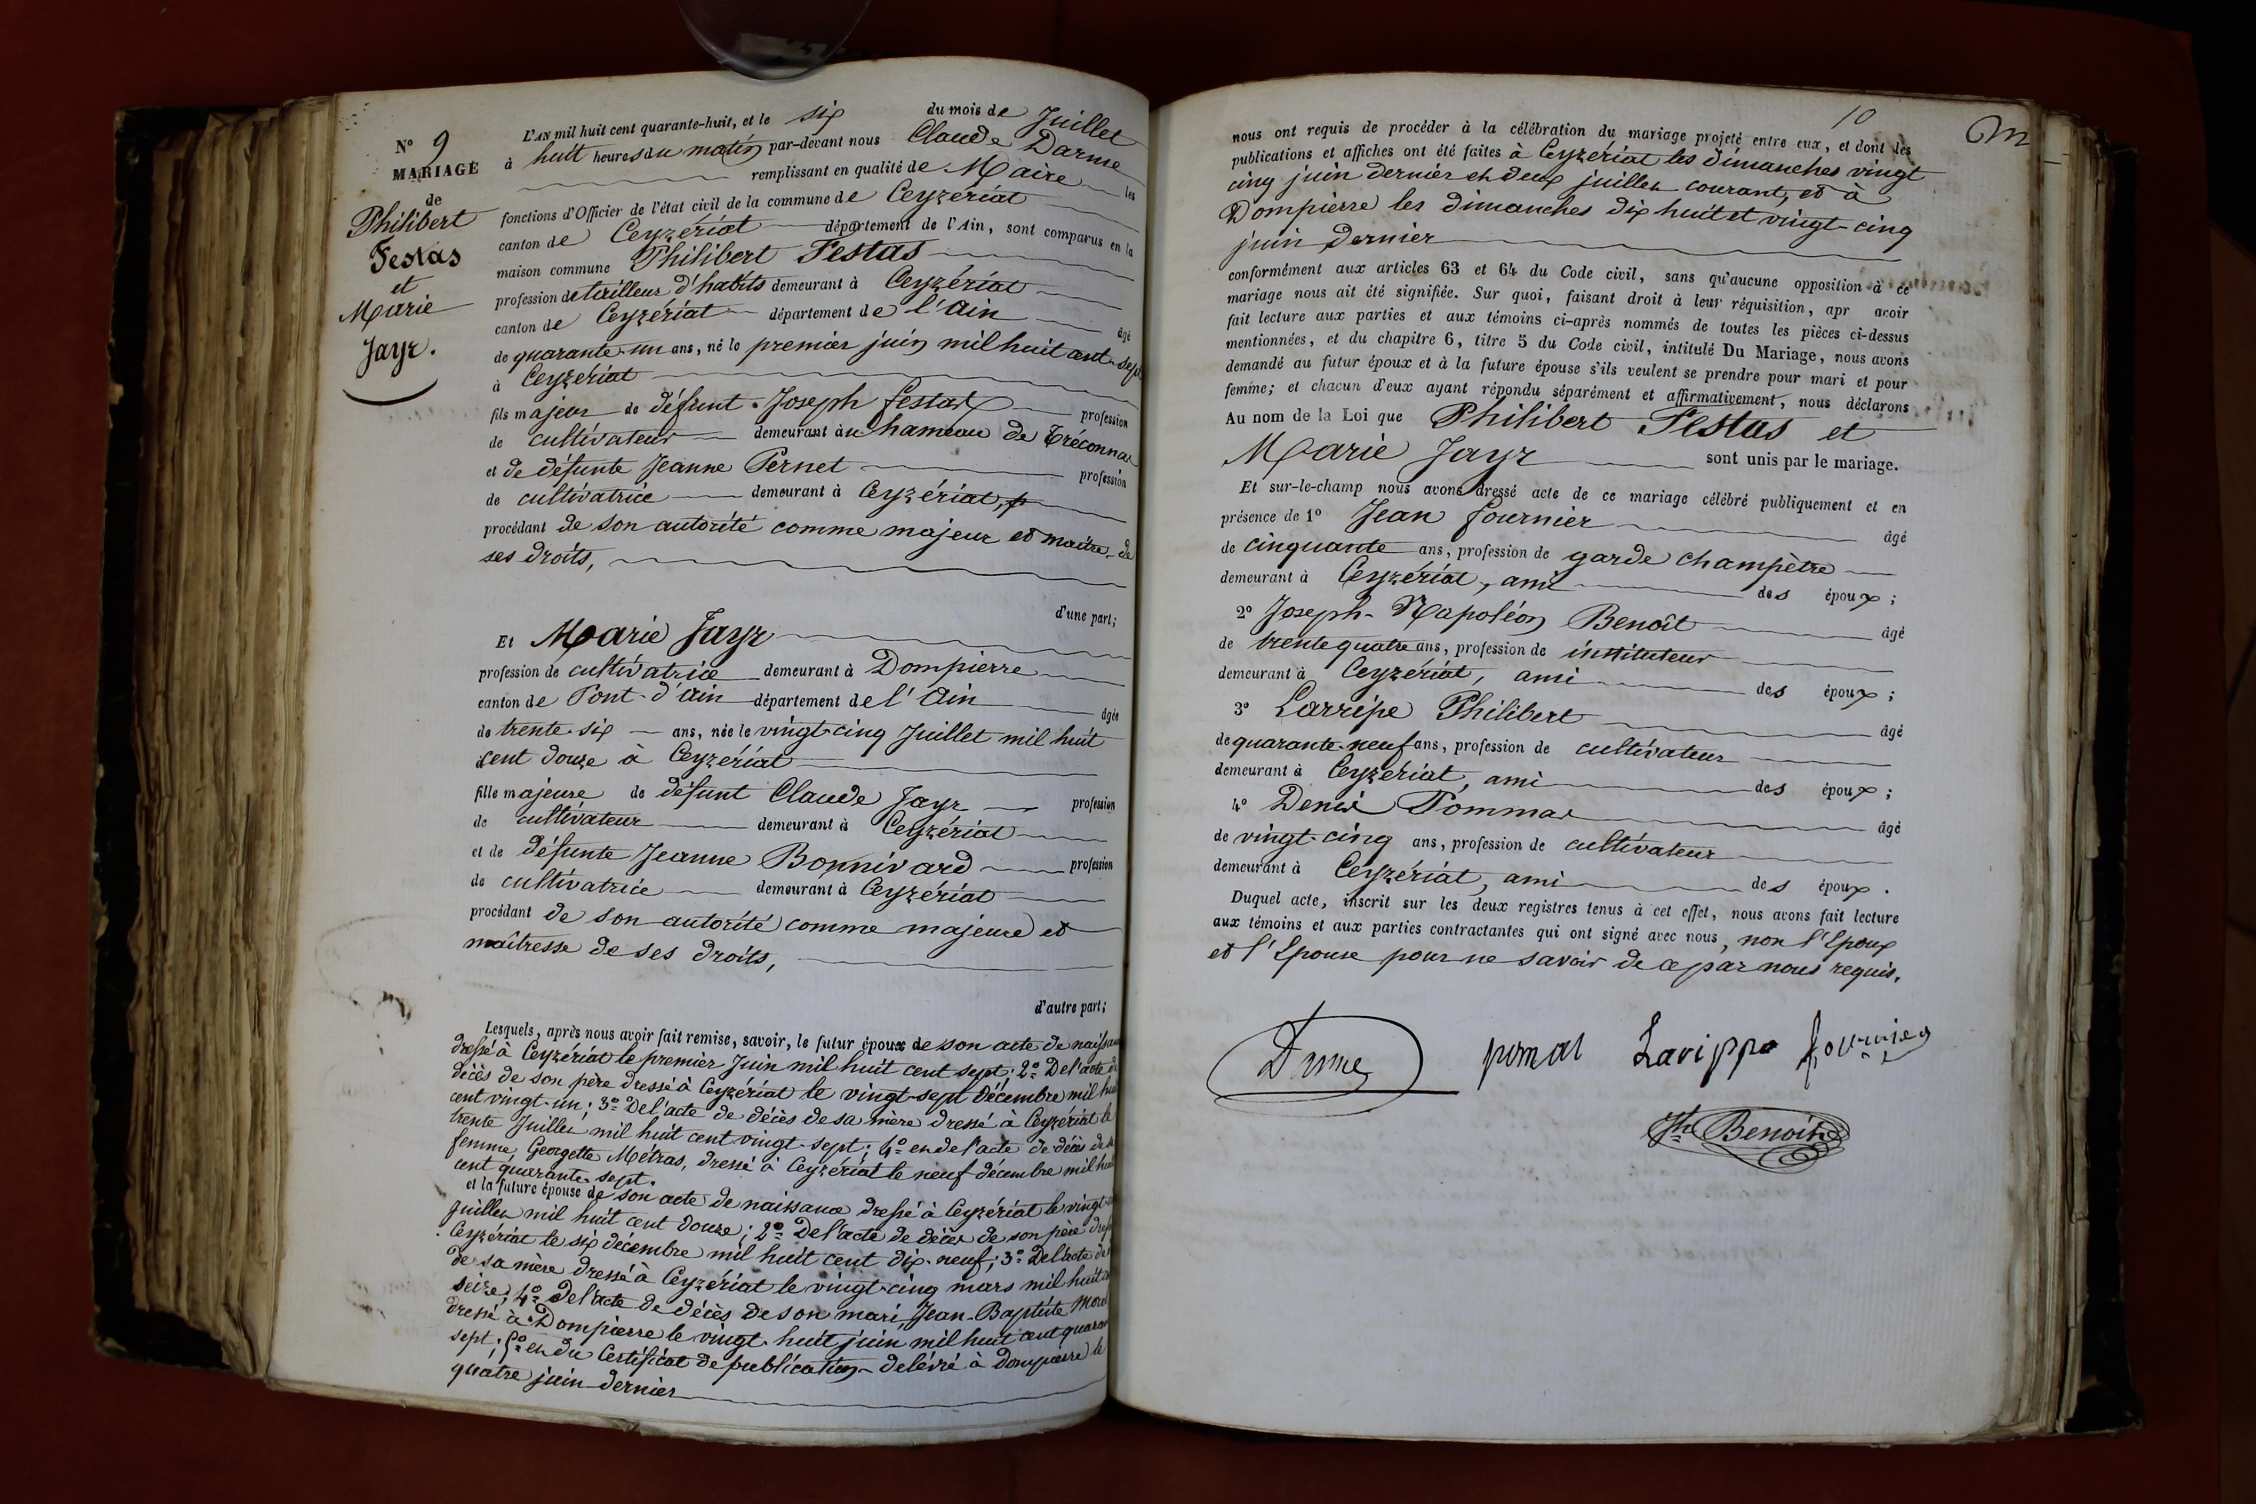 N° 9
MARIAGE
de
Philibert
Festas
et
Marie
Jayr.
L'AN mil huit cent quarante-huit, et le six du mois de Juillet
à huit heures du matin par-devant nous Claude Darme
remplissant en qualité de Maire les
fonctions d'Officier de l'état civil de la commune de Ceyzériat
canton de Ceyzériat département de l'Ain, sont comparus en la
maison commune Philibert Festas
profession de tailleur d'habits demeurant à Ceyzériat
canton de Ceyzériat département de l'Ain âgé
de quarante-un ans, né le premier juin mil huit cent-sept
à Ceyzériat
fils majeur de défunt Joseph Festas profession
de cultivateur demeurant au hameau de Tréconnas
et de défunte Jeanne Pernet profession
de cultivatrice demeurant à Ceyzériat,
procédant de son autorité comme majeur et maître de
ses droits,
d'une part;
Et Marie Jayr
profession de cultivatrice demeurant à Dompierre
canton de Pont-d'Ain département de l'Ain âgée
de trente-six ans, née le vingt-cinq Juillet mil huit
cent douze à Ceyzériat
fille majeure de défunt Claude Jayr profession
de cultivateur demeurant à Ceyzériat
et de défunte Jeanne Bonnivard profession
de cultivatrice demeurant à Ceyzériat
procédant de son autorité comme majeure et
maîtresse de ses droits,
d'autre part;
Lesquels, après nous avoir fait remise, savoir, le futur époux de son acte de
dressé à Ceyzériat le premier Juin mil huit cent sept; 2° De l'acte de
décès de son père dressé à Ceyzériat le vingt-sept Décembre mil
cent vingt-un; 3° De l'acte de décès de sa mère dressé à Ceyzériat le
trente Juillet mil huit cent vingt-sept; 4° et de l'acte de décès de
femme, Georgette Métras, dressé à Ceyzériat le neuf décembre mil
cent quarante-sept.
et la future épouse de son acte de naissance dressé à Ceyzériat le vingt
Juillet mil huit cent douze; 2° De l'acte de décès de son père
Ceyzériat le six décembre mil huit cent dix-neuf; 3° De l'acte de
de sa mère dressé à Ceyzériat le vingt-cinq mars mil huit
seize; 4° De l'acte de décès de son mari, Jean-Baptiste
dressé à Dompierre le vingt-huit juin mil huit cent
sept; 5° et du Certificat de publication délivré à Dompierre le
quatre juin dernier
10
M
nous ont requis de procéder à la célébration du mariage projeté entre eux, et dont les
publications et affiches ont été faites à Ceyzériat les dimanches vingt
cinq juin dernier et deux juillet courant, et à
Dompierre les dimanches dix huit et vingt-cinq
juin dernier
conformément aux articles 63 et 64 du Code civil, sans qu'aucune opposition à ce
mariage nous ait été signifiée. Sur quoi, faisant droit à leur réquisition, apr avoir
fait lecture aux parties et aux témoins ci-après nommés de toutes les pièces ci-dessus
mentionnées, et du chapitre 6, titre 5 du Code civil, intitulé Du Mariage, nous avons
demandé au futur époux et à la future épouse s'ils veulent se prendre pour mari et pour
femme; et chacun d'eux ayant répondu séparément et affirmativement, nous déclarons
Au nom de la Loi que Philibert Festas et
Marie Jayr sont unis par le mariage.
Et sur-le-champ nous avons dressé acte de ce mariage célébré publiquement et en
présence de 1° Jean Fournier âgé
de cinquante ans, profession de garde champêtre
demeurant à Ceyzériat, ami des époux;
2° Joseph-Napoléon Benoît âgé
de trente quatre ans, profession de instituteur
demeurant à Ceyzériat, ami des époux;
3° Larripe Philibert âgé
de quarante-neuf ans, profession de cultivateur
demeurant à Ceyzériat, ami des époux;
4° Denis Pommas âgé
de vingt-cinq ans, profession de cultivateur
demeurant à Ceyzériat, ami des époux.
Duquel acte, inscrit sur les deux registres tenus à cet effet, nous avons fait lecture
aux témoins et aux parties contractantes qui ont signé avec nous, non l'Epoux
et l'Epouse pour ne savoir de ce par nous requis.
Darme pomat Larippe fournier
Jh Benoit